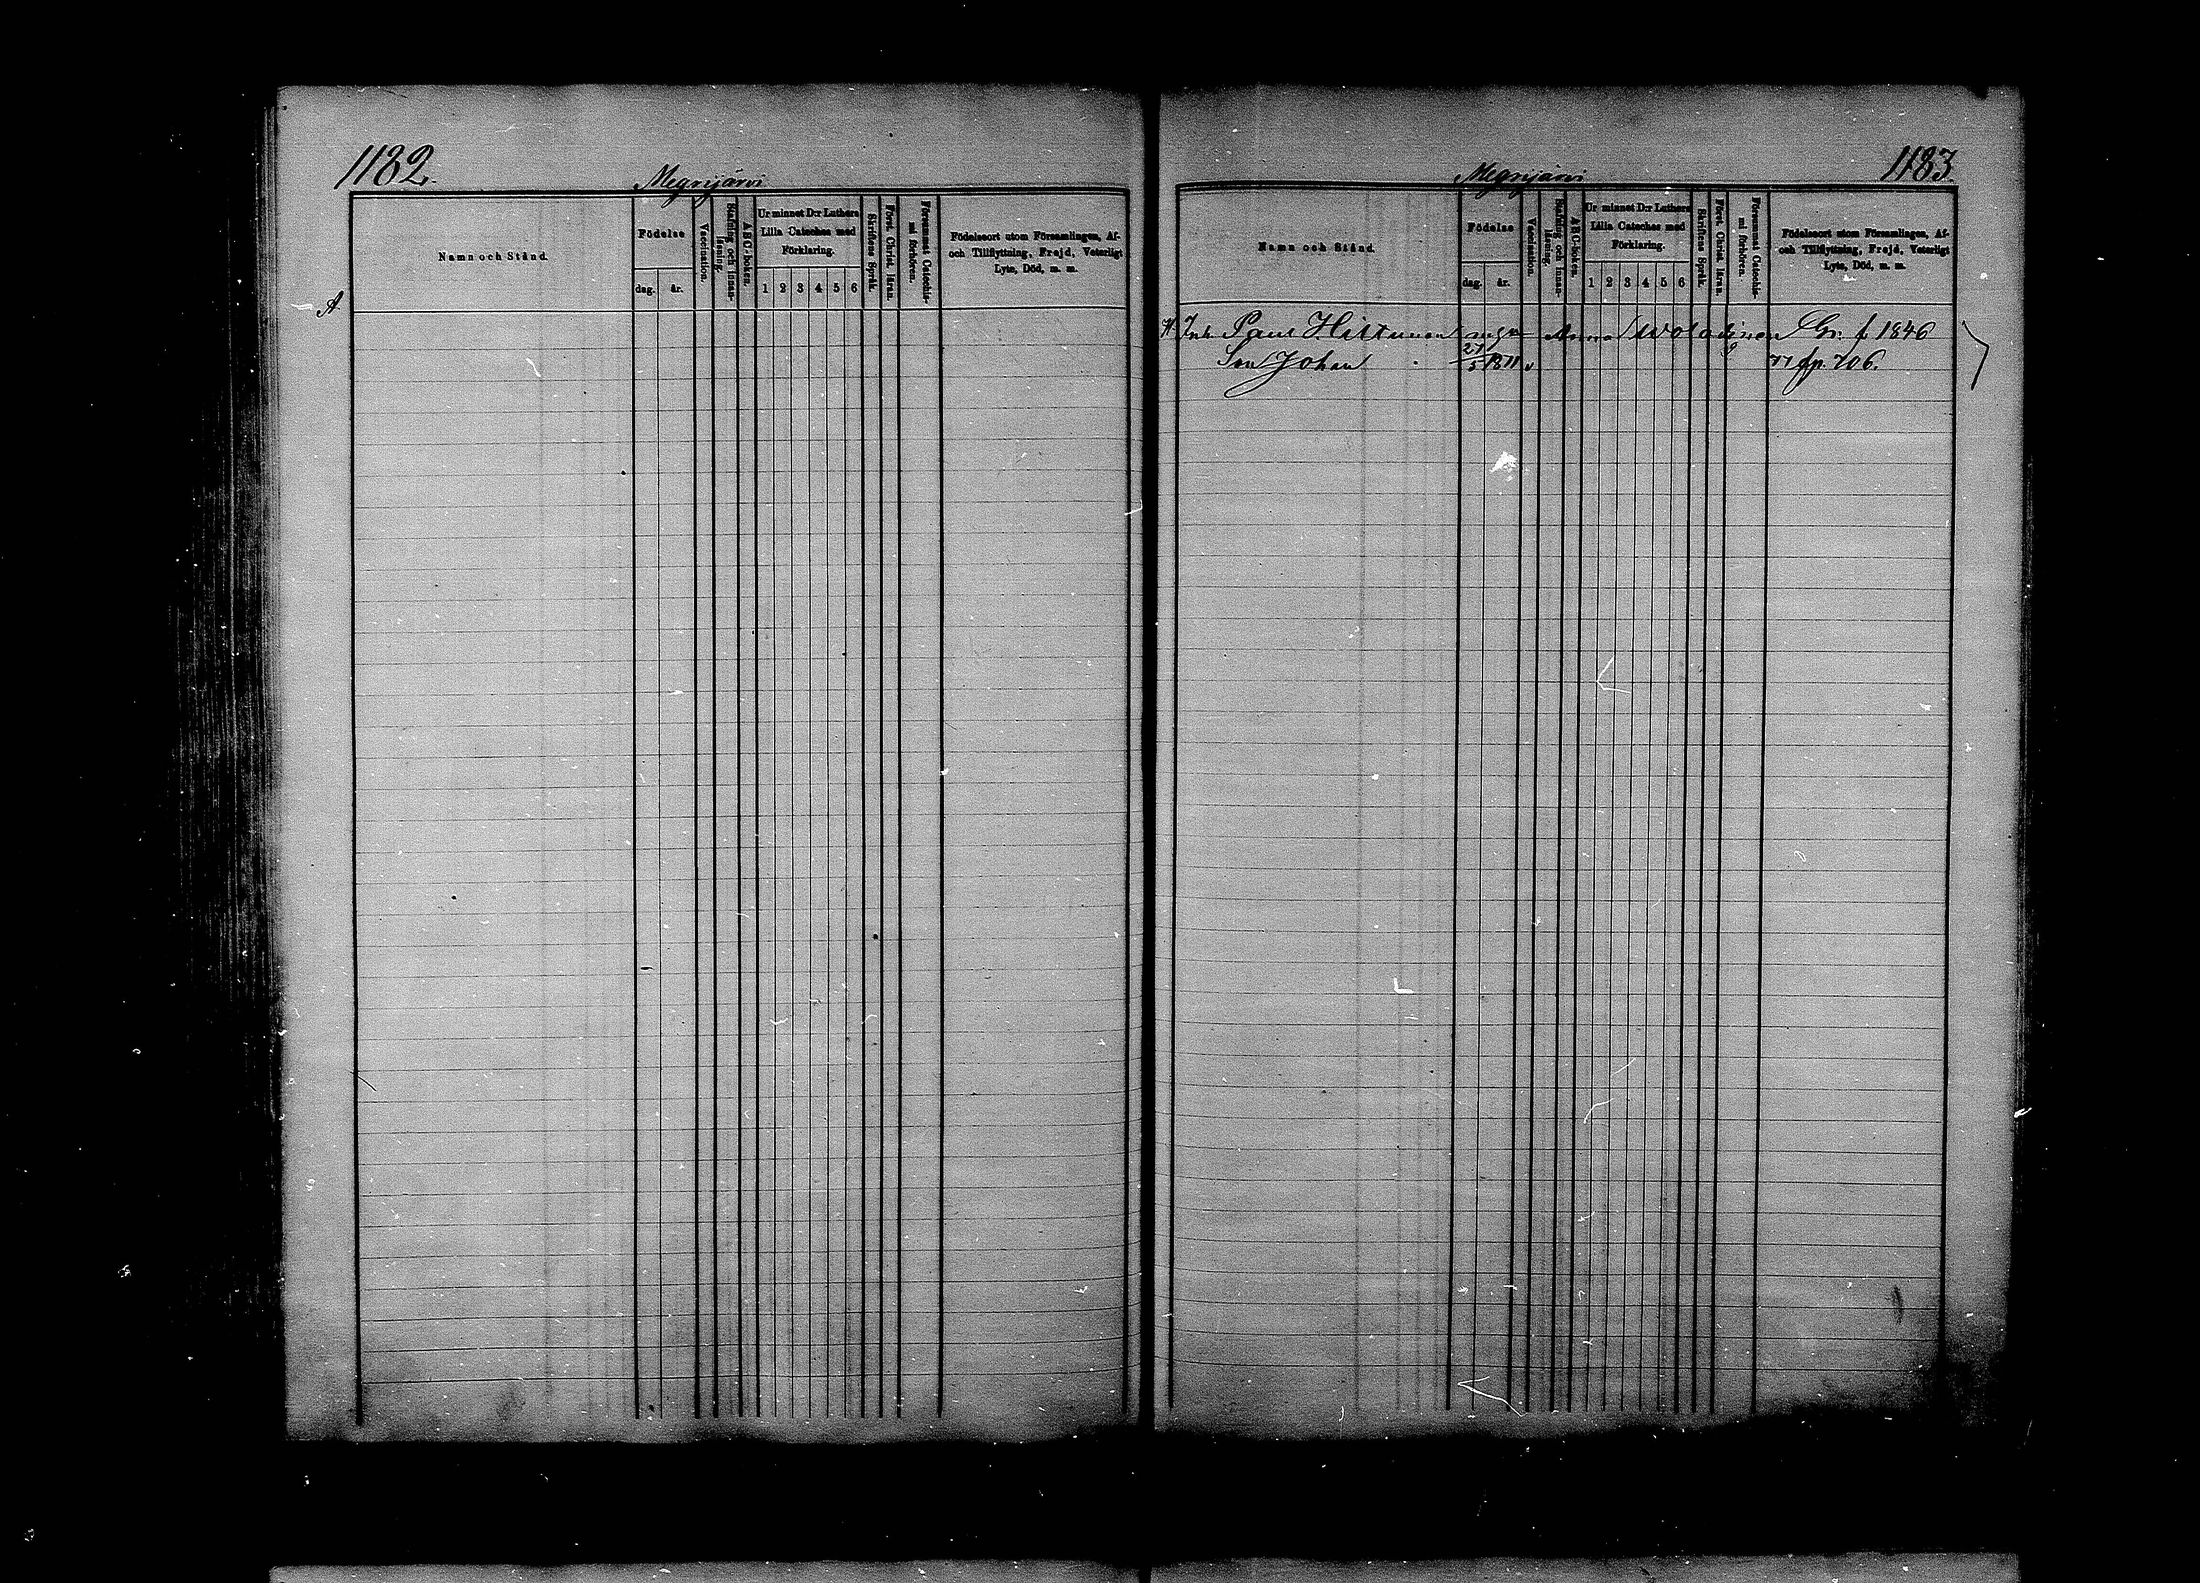 1182.
Megrijärvi
Namn och Stånd.
Födelse
dag. år.
Vaccination.
Stafning och innan-läsning.
A B C-boken.
Ur minnet D:r Luthers
Lilla Cateches med
Förklaring.
1 2 3 4 5 6
Skriftens Språk.
Först. Christ. läran.
Försummat Catechis-mi förhören.
Födelseort utom Församlingen, Af-
och Tillflyttning, Frejd, Veterligt
Lyte, Död, m. m.
A
1183.
Megrijärvi
Namn och Stånd.
Födelse
dag. år.
Vaccination.
Stafning och innan-läsning.
A B C-boken.
Ur minnet D:r Luthers
Lilla Cateches med
Förklaring.
1 2 3 4 5 6
Skriftens Språk.
Först. Christ. läran.
Försummat Catechis-mi förhören.
Födelseort utom Församlingen, Af-
och Tillflyttning, Frejd, Veterligt
Lyte, Död, m. m.
Inh. Paul Hiltunen Anna Gr. f. 1846
Son Johan 27/5 1871 v 77 fp. 706.